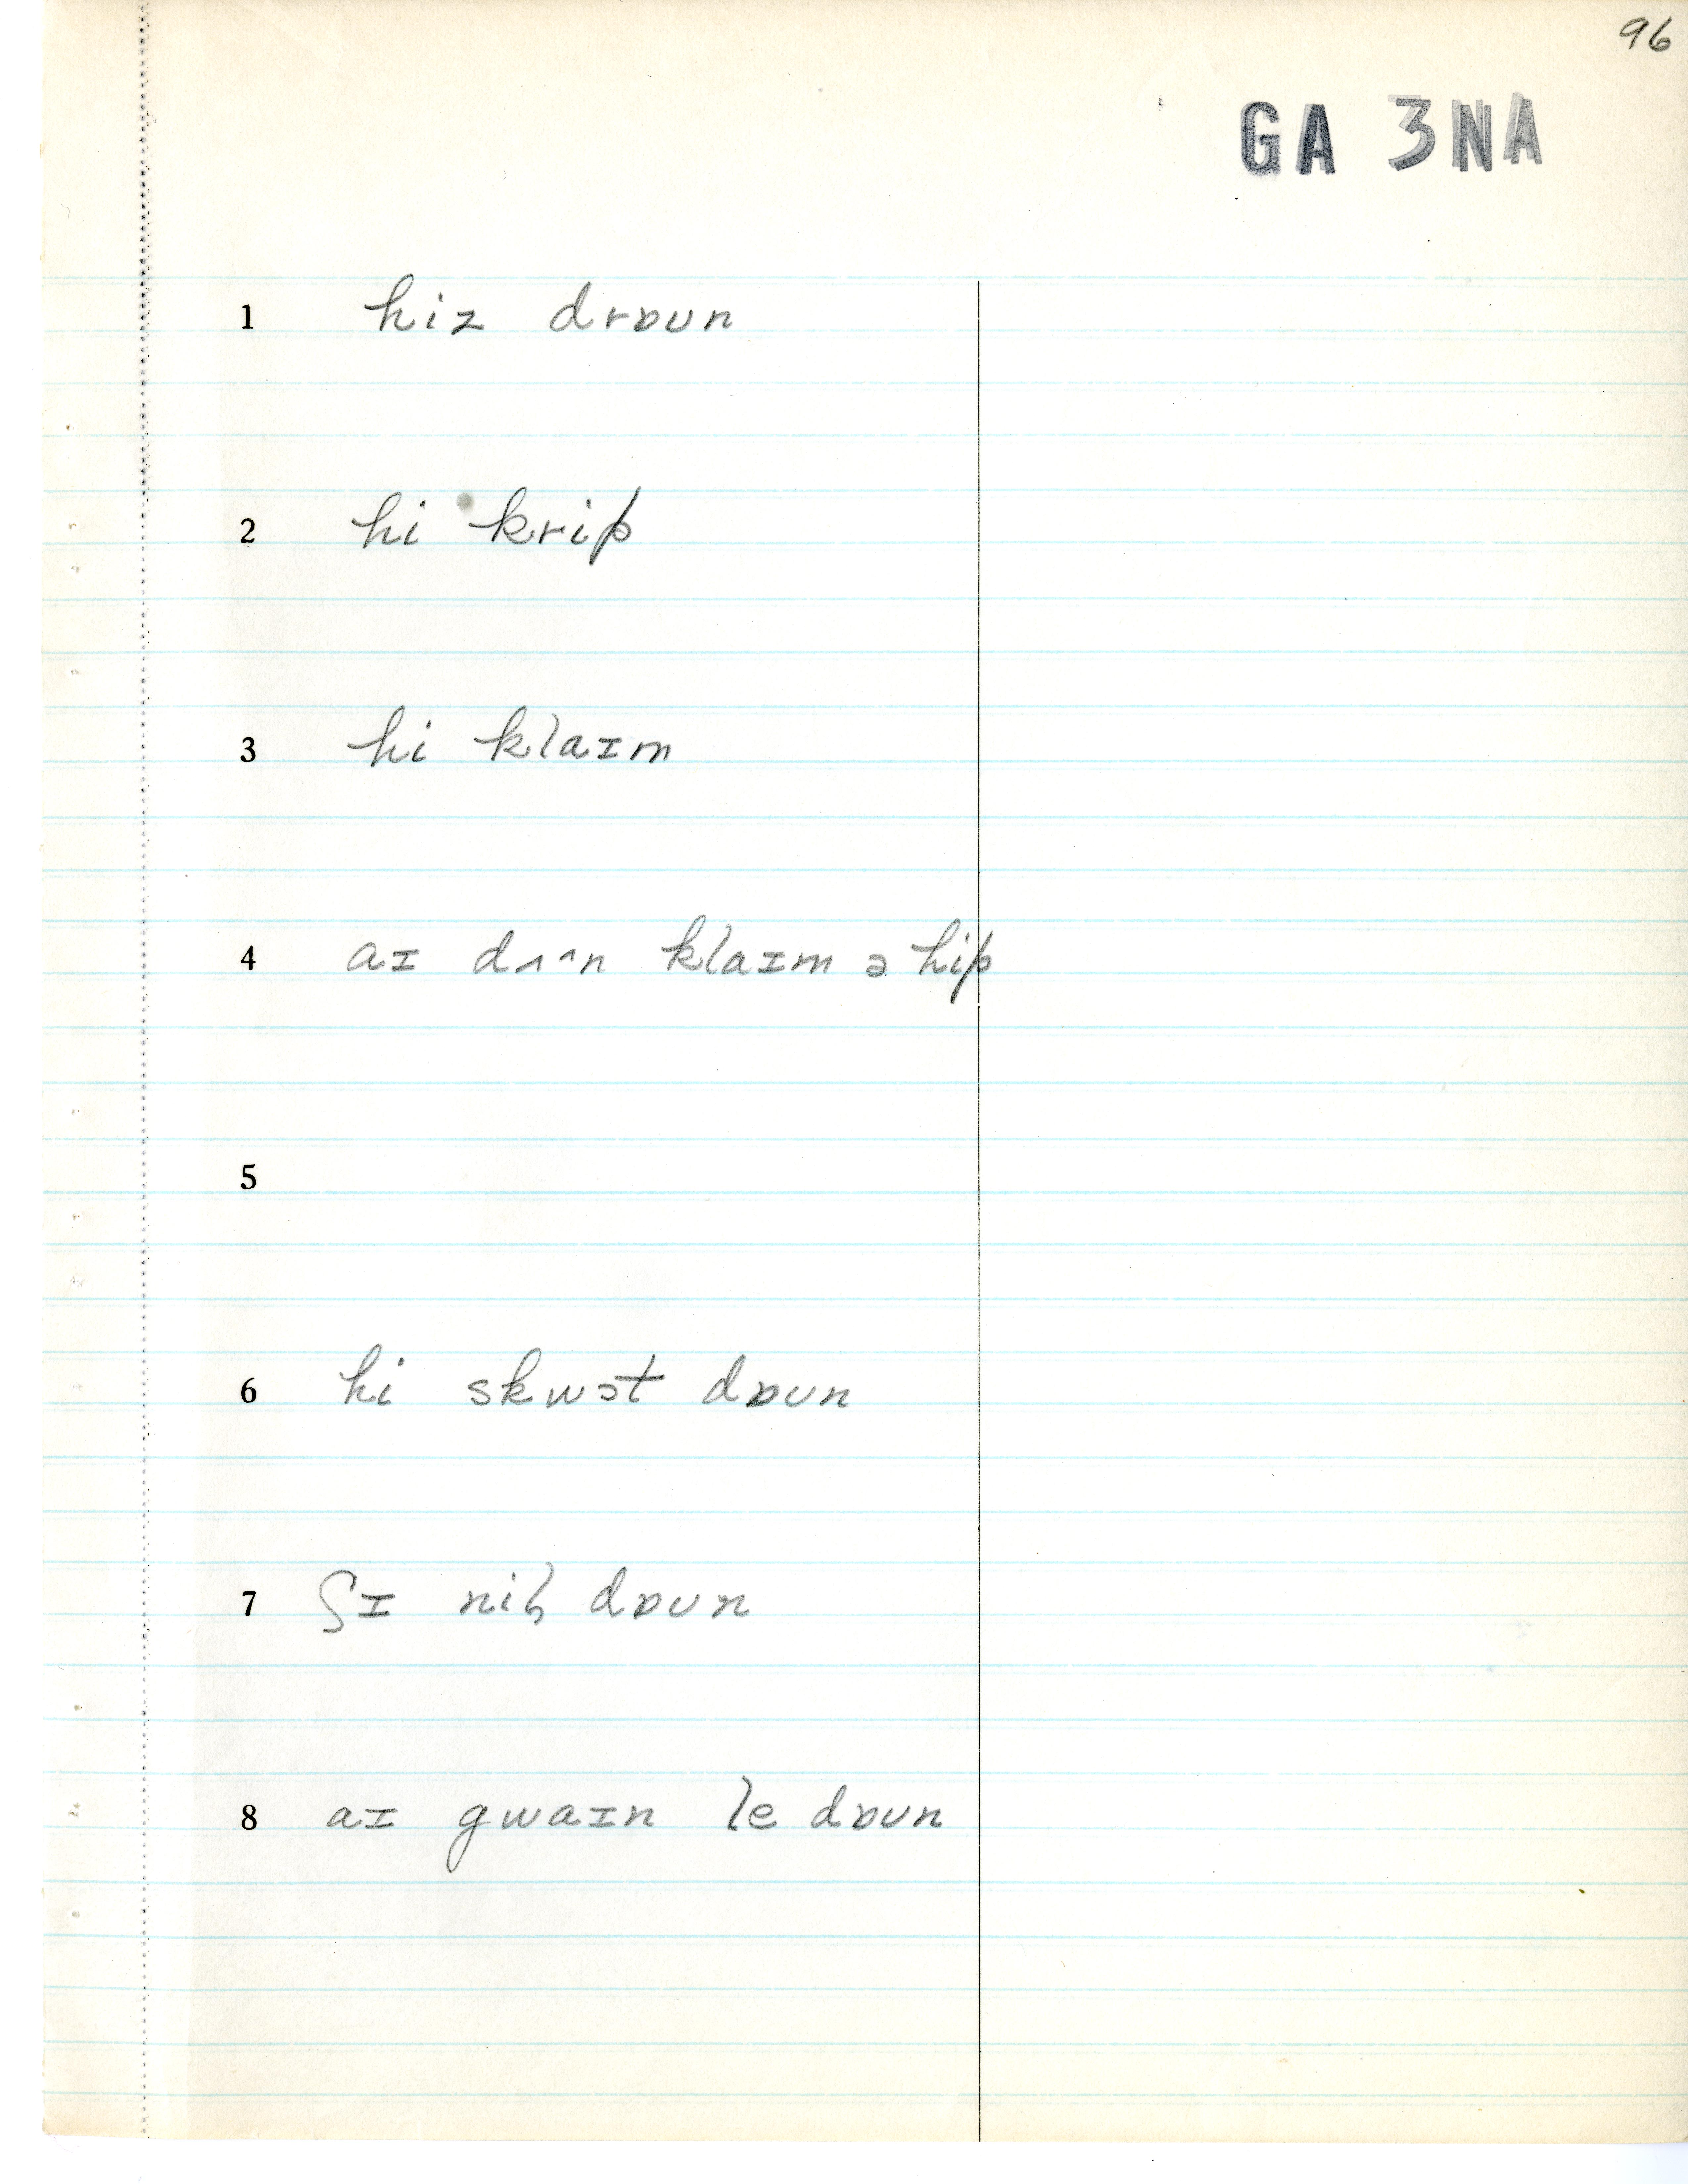 96
GA 3NA
1 hiz drɒʊn
2 hi krip
3 hi klaɪm
4 aɪ dʌ^n klaɪm ə hip
5
6 hi skwɔt dɒʊn
7 ʃɪ nil̥ dɒʊn
8 aɪ gwaɪn le dɒʊn